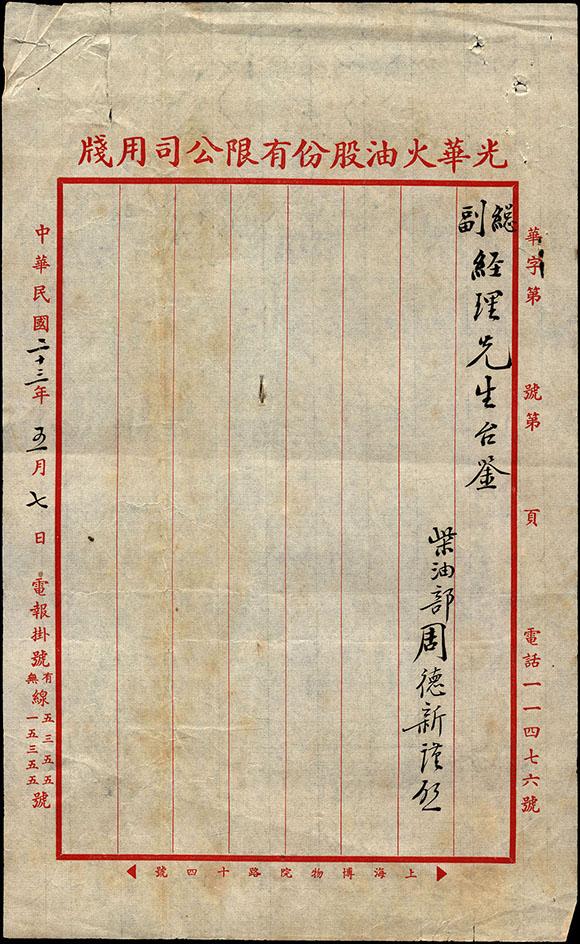 光華火油股份有限公司用牋
華字第 號第 頁 電話一一四七六號
總副經理先生台鋻
柴油部周德新謹啟
中華民國二十三年五月七日 電報掛號有線五三五五無線一五三五五號
上海博物院路十四號